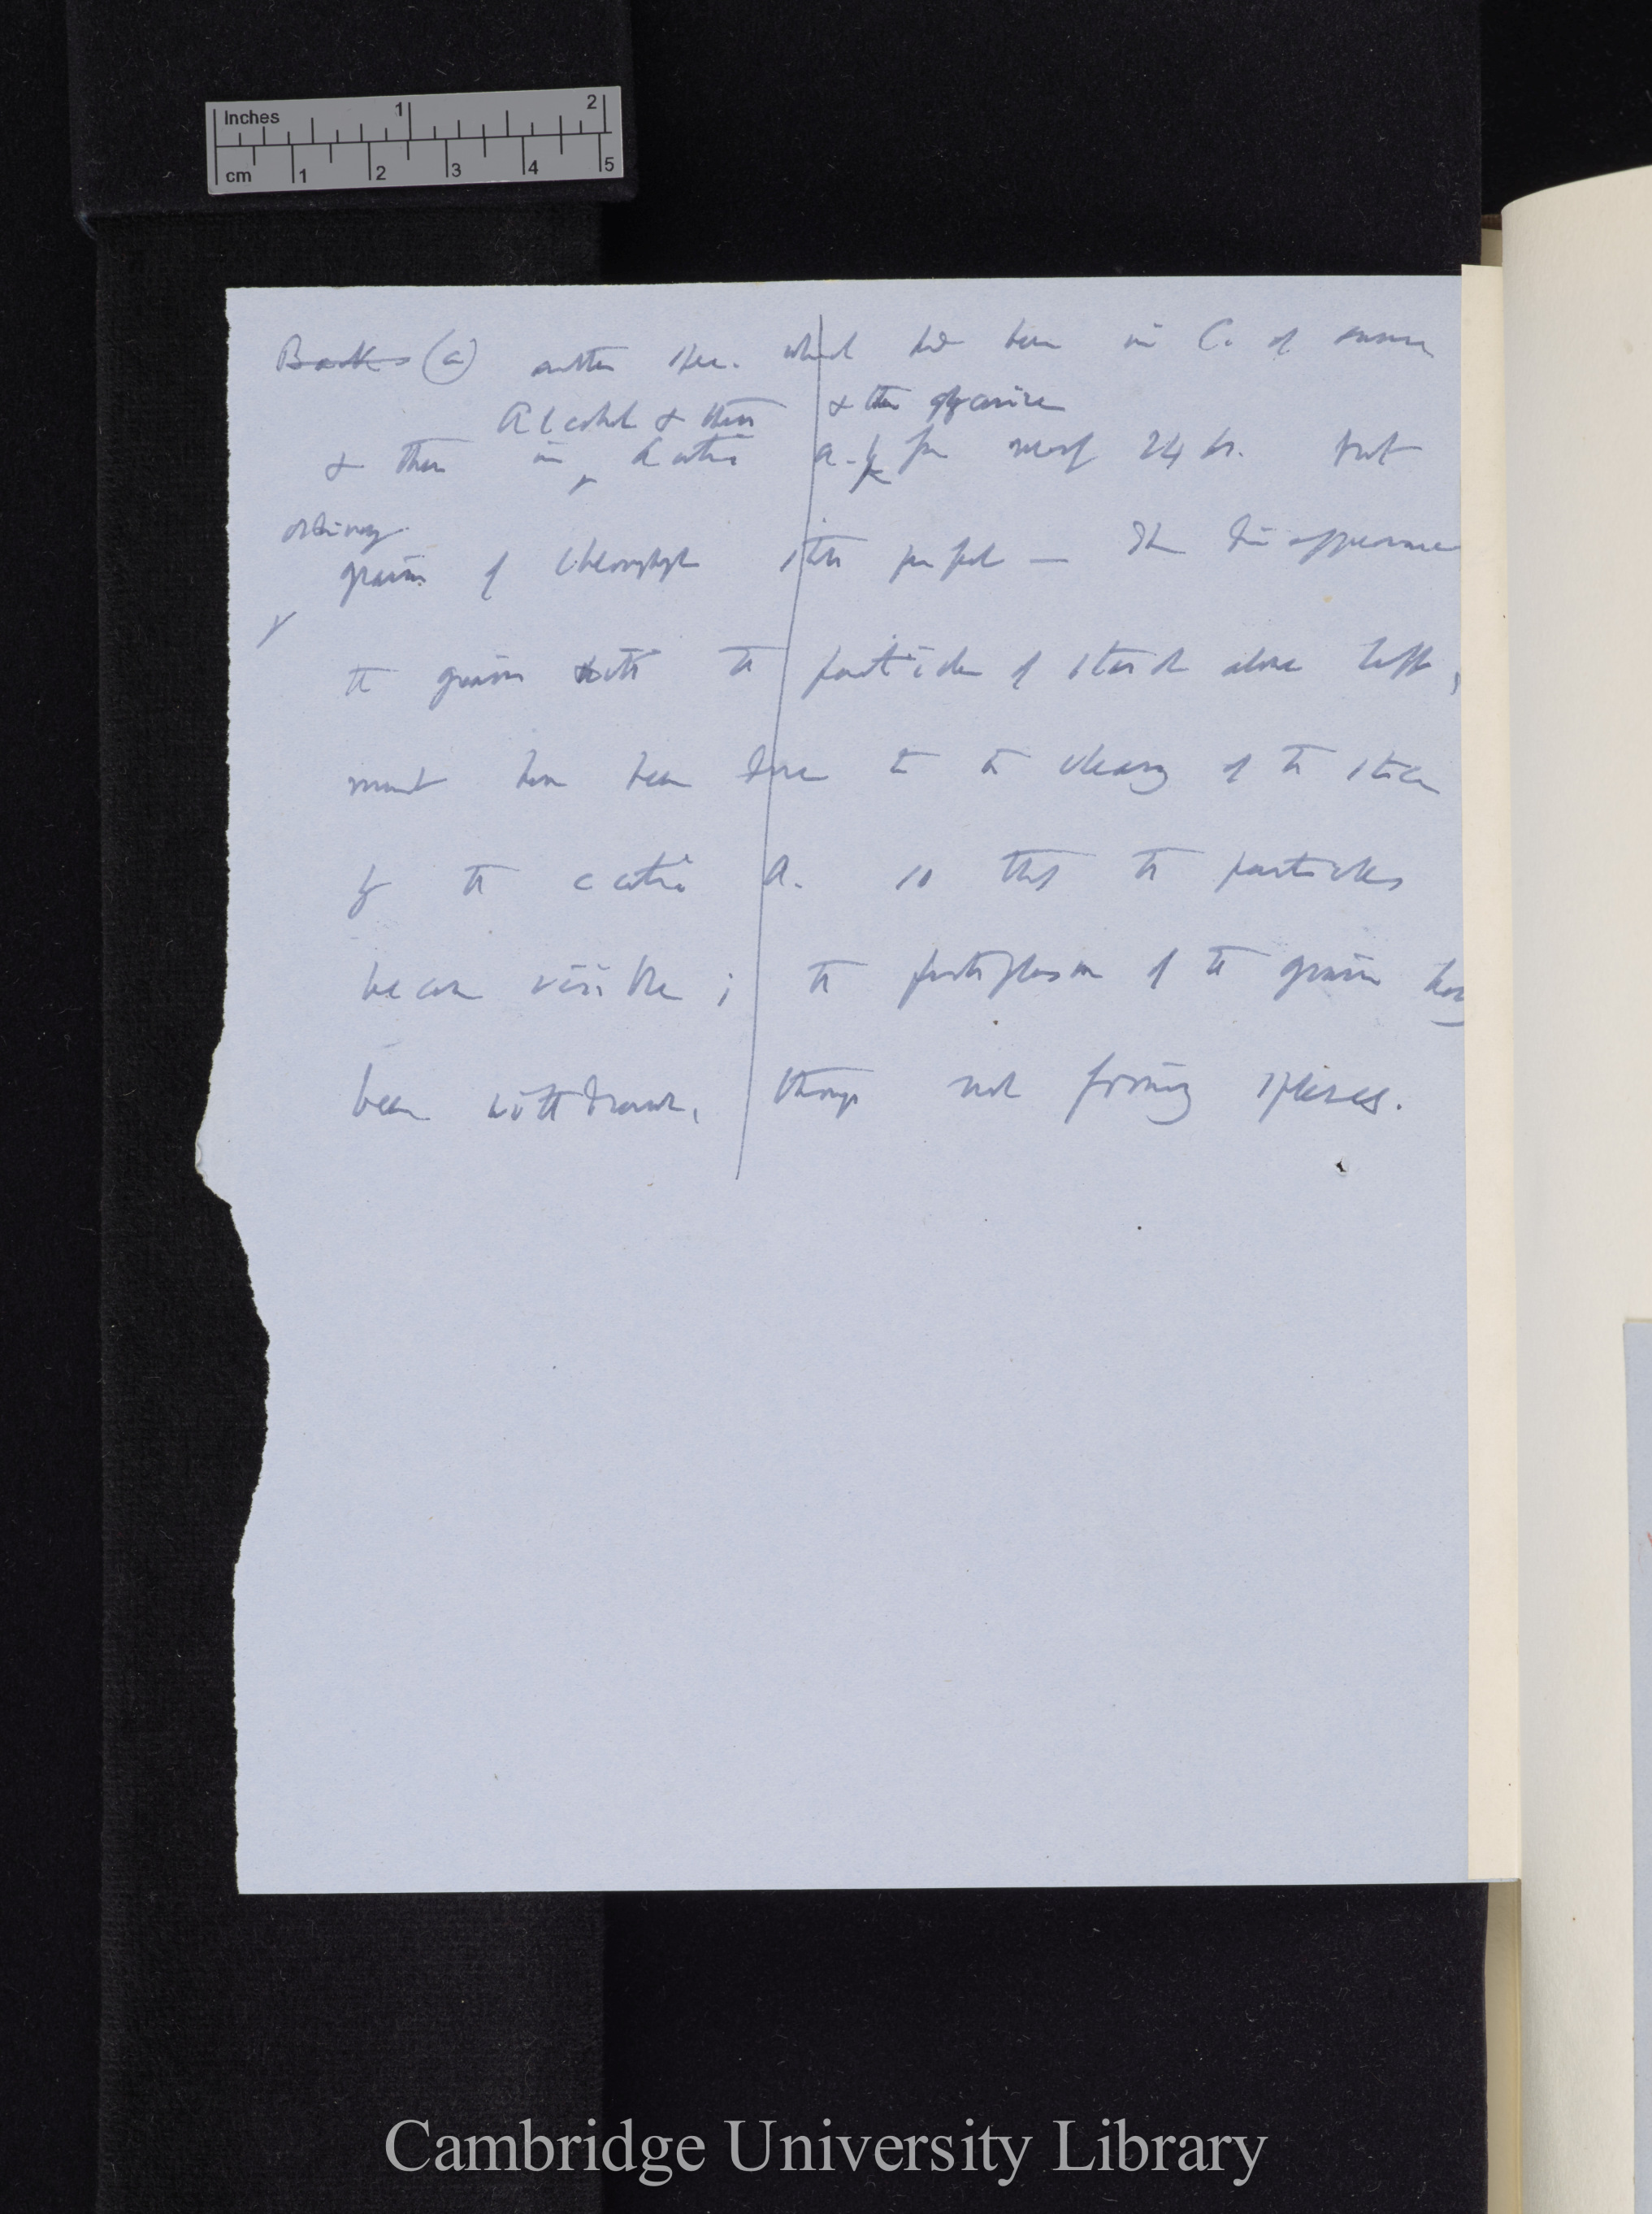 Inches 1 2
cm 1 2 3 4 5
Back (a) another spec. which had been in C. of ammonia
Alcohol & then & then glycerine
& then in acetic a. for nearly 24 hr. but
ordinary
grains of chlorophyll still perfect — The disappearance
the grains with the particles of starch alone left,
must have been due to the clearing of the
by the acetic A. so that the particles
became visible; the protoplasm of the grain having
been withdrawn, though not forming spheres.
Cambridge University Library